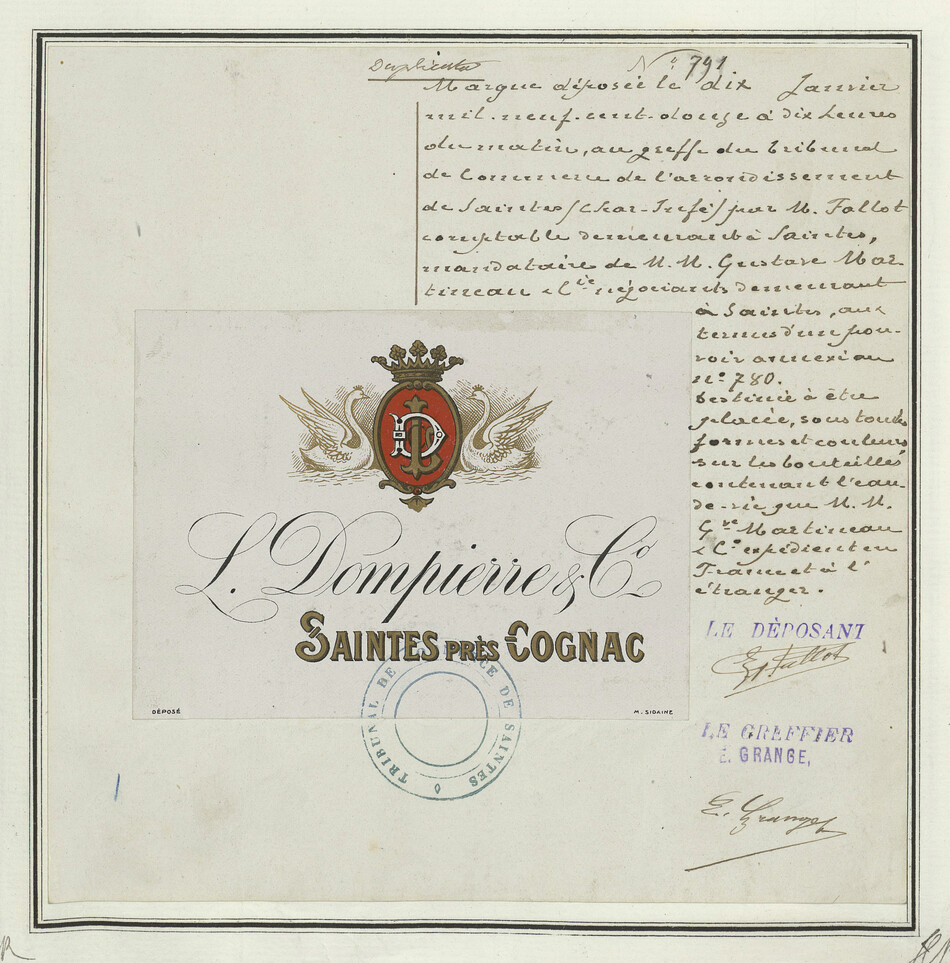 Duplicata
N° 791
Marque déposée le dix Janvier
mil-neuf-cent-douze à dix heures
du matin, au greffe du tribunal
de Commerce de l'arrondissement
de Saintes (Char-Infé) par M. Fallot
comptable demeurant à Saintes,
mandataire de M.M. Gustave Mar-
tineau & Cie négociants demeurant
à Saintes, aux
termes d'un pou-
voir annexé au
n° 780.
Destinée à être
placée, sous toutes
formes et couleurs
sur les bouteilles
contenant l'eau-
de-vie que M.M.
Gve Martineau
& Co expédient en
France et à l'
étranger.
L. Dompierre & Co
SAINTES PRÈS COGNAC
DÉPOSÉ
M. SIDAINE
TRIBUNAL DE COMMERCE DE SAINTES
LE DÉPOSANT
Fallot
LE GREFFIER
E. GRANGE,
E. Grange